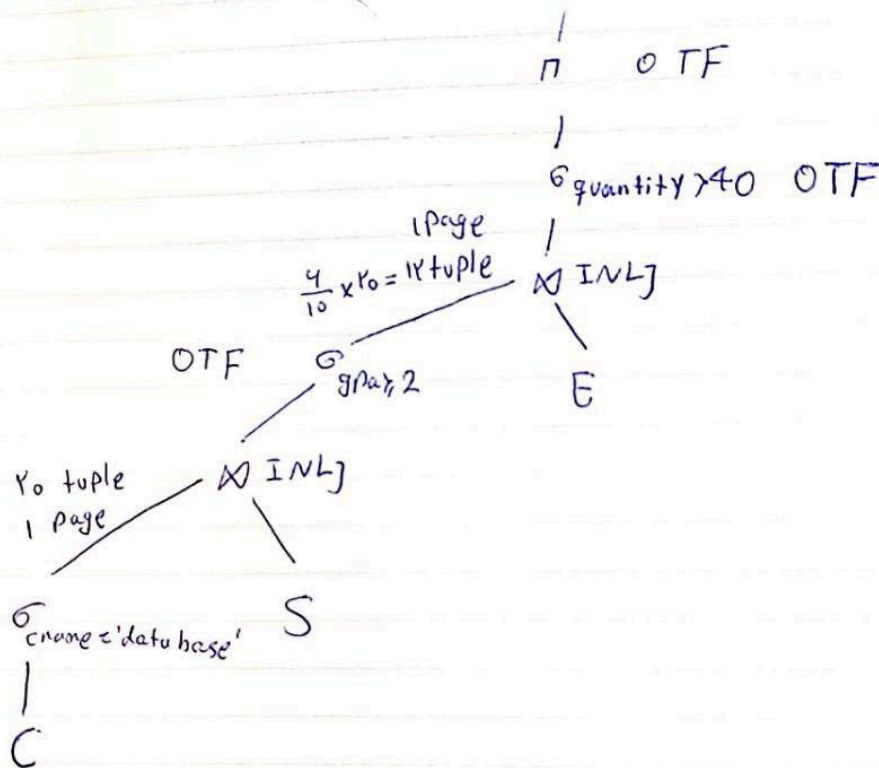 π OTF
σ quantity >40 OTF
1 page
۶/10 x ۲0 = 1۲ tuple
⋈ INLJ
OTF σ gpa ≥ 2
E
۲0 tuple
⋈ INLJ
1 page
σ cname = 'database'
S
C